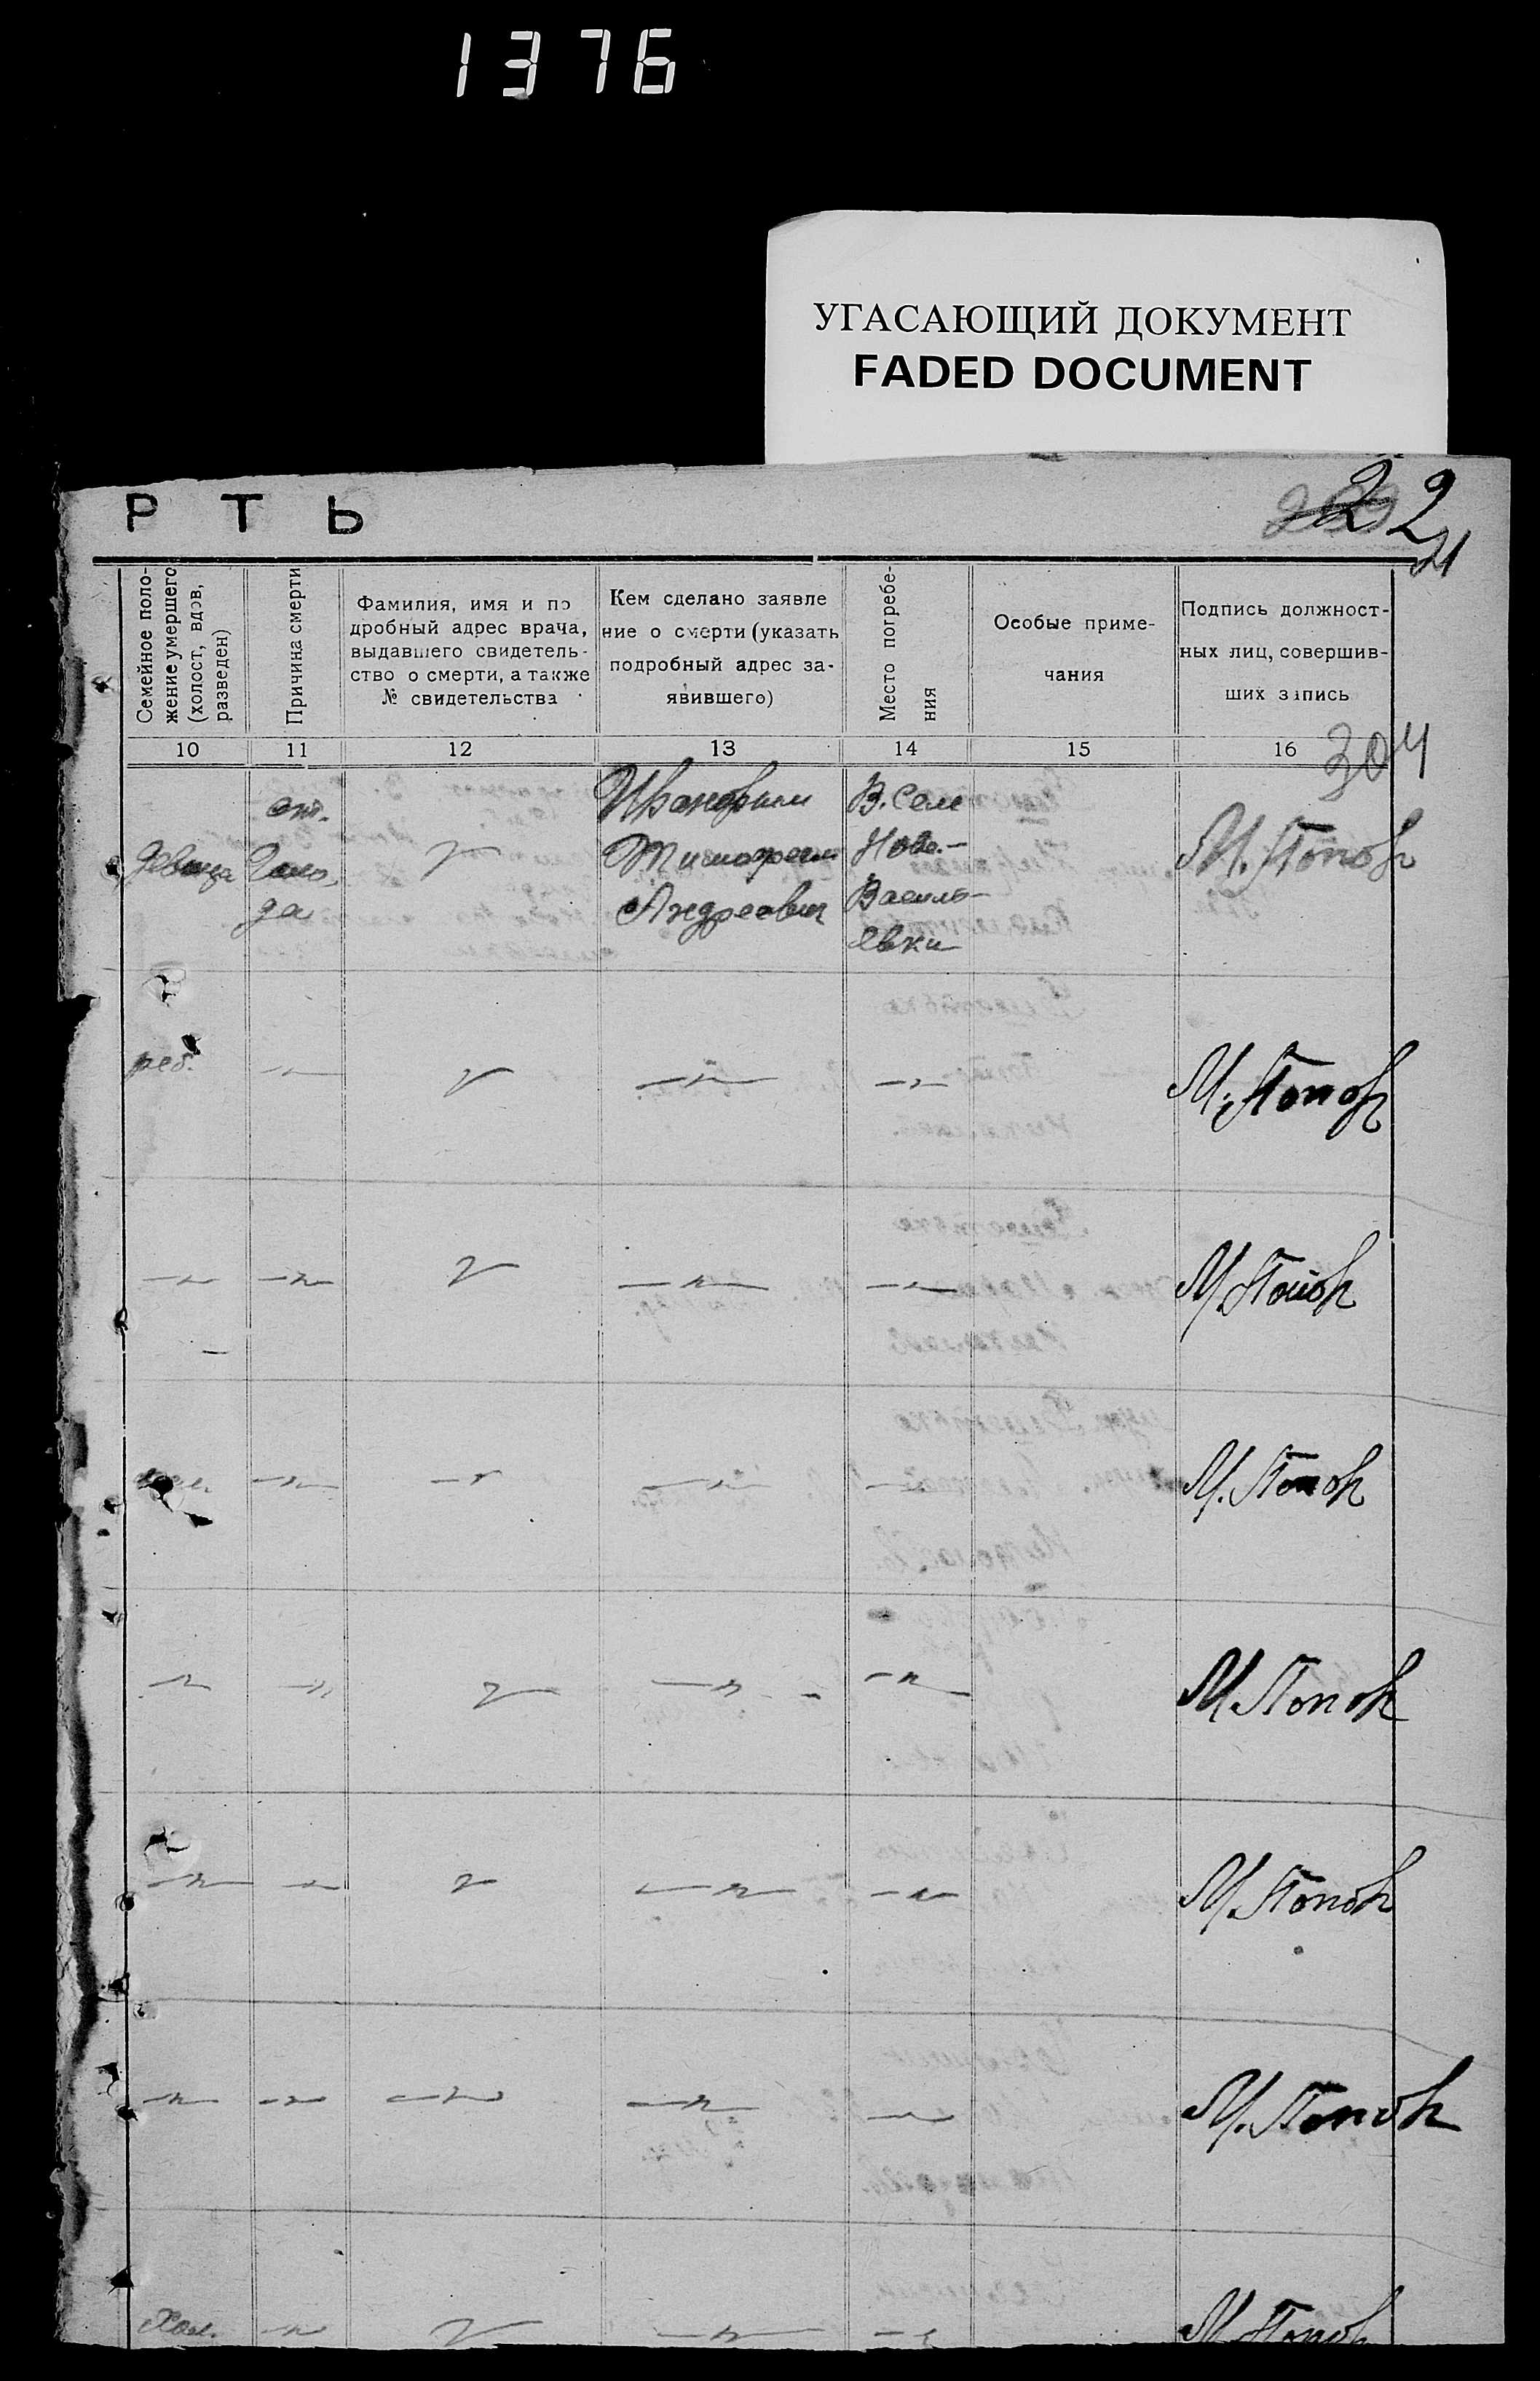 1376
УГАСАЮЩИЙ ДОКУМЕНТ
FADED DOCUMENT
Р Т Ь
22
21
Семейное поло-
жение умершего
(холост, вдов,
разведен)
Причина смерти
Фамилия, имя и по
дробный адрес врача,
выдавшего свидетель-
ство о смерти, а также
№ свидетельства
Кем сделано заявле
ние о смерти (указать
подробный адрес за-
явившего)
Место погребе-
ния
Особые приме-
чания
Подпись должност-
ных лиц, совершив-
ших запись
10
11
12
13
14
15
16
304
девица
от.
Голо-
да
Тимофеем
Андреевич
В. Селе
Ново-
Василь-
евки
М. Попов
реб.
М. Попов
М. Попов
М. Попов
М. Попов
М. Попов
М. Попов
Хол.
М. Попов